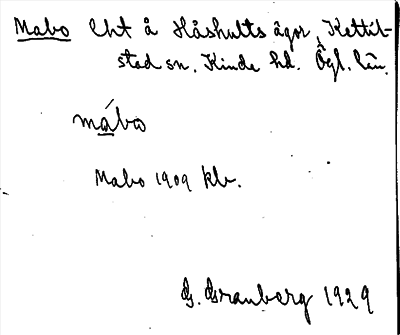 Mabo Lht å Håshults ägor, Kettil-
stad sn. Kinda hd. Ögl. län.
mábo
Mabo 1909 kb.
G. Granberg 1929